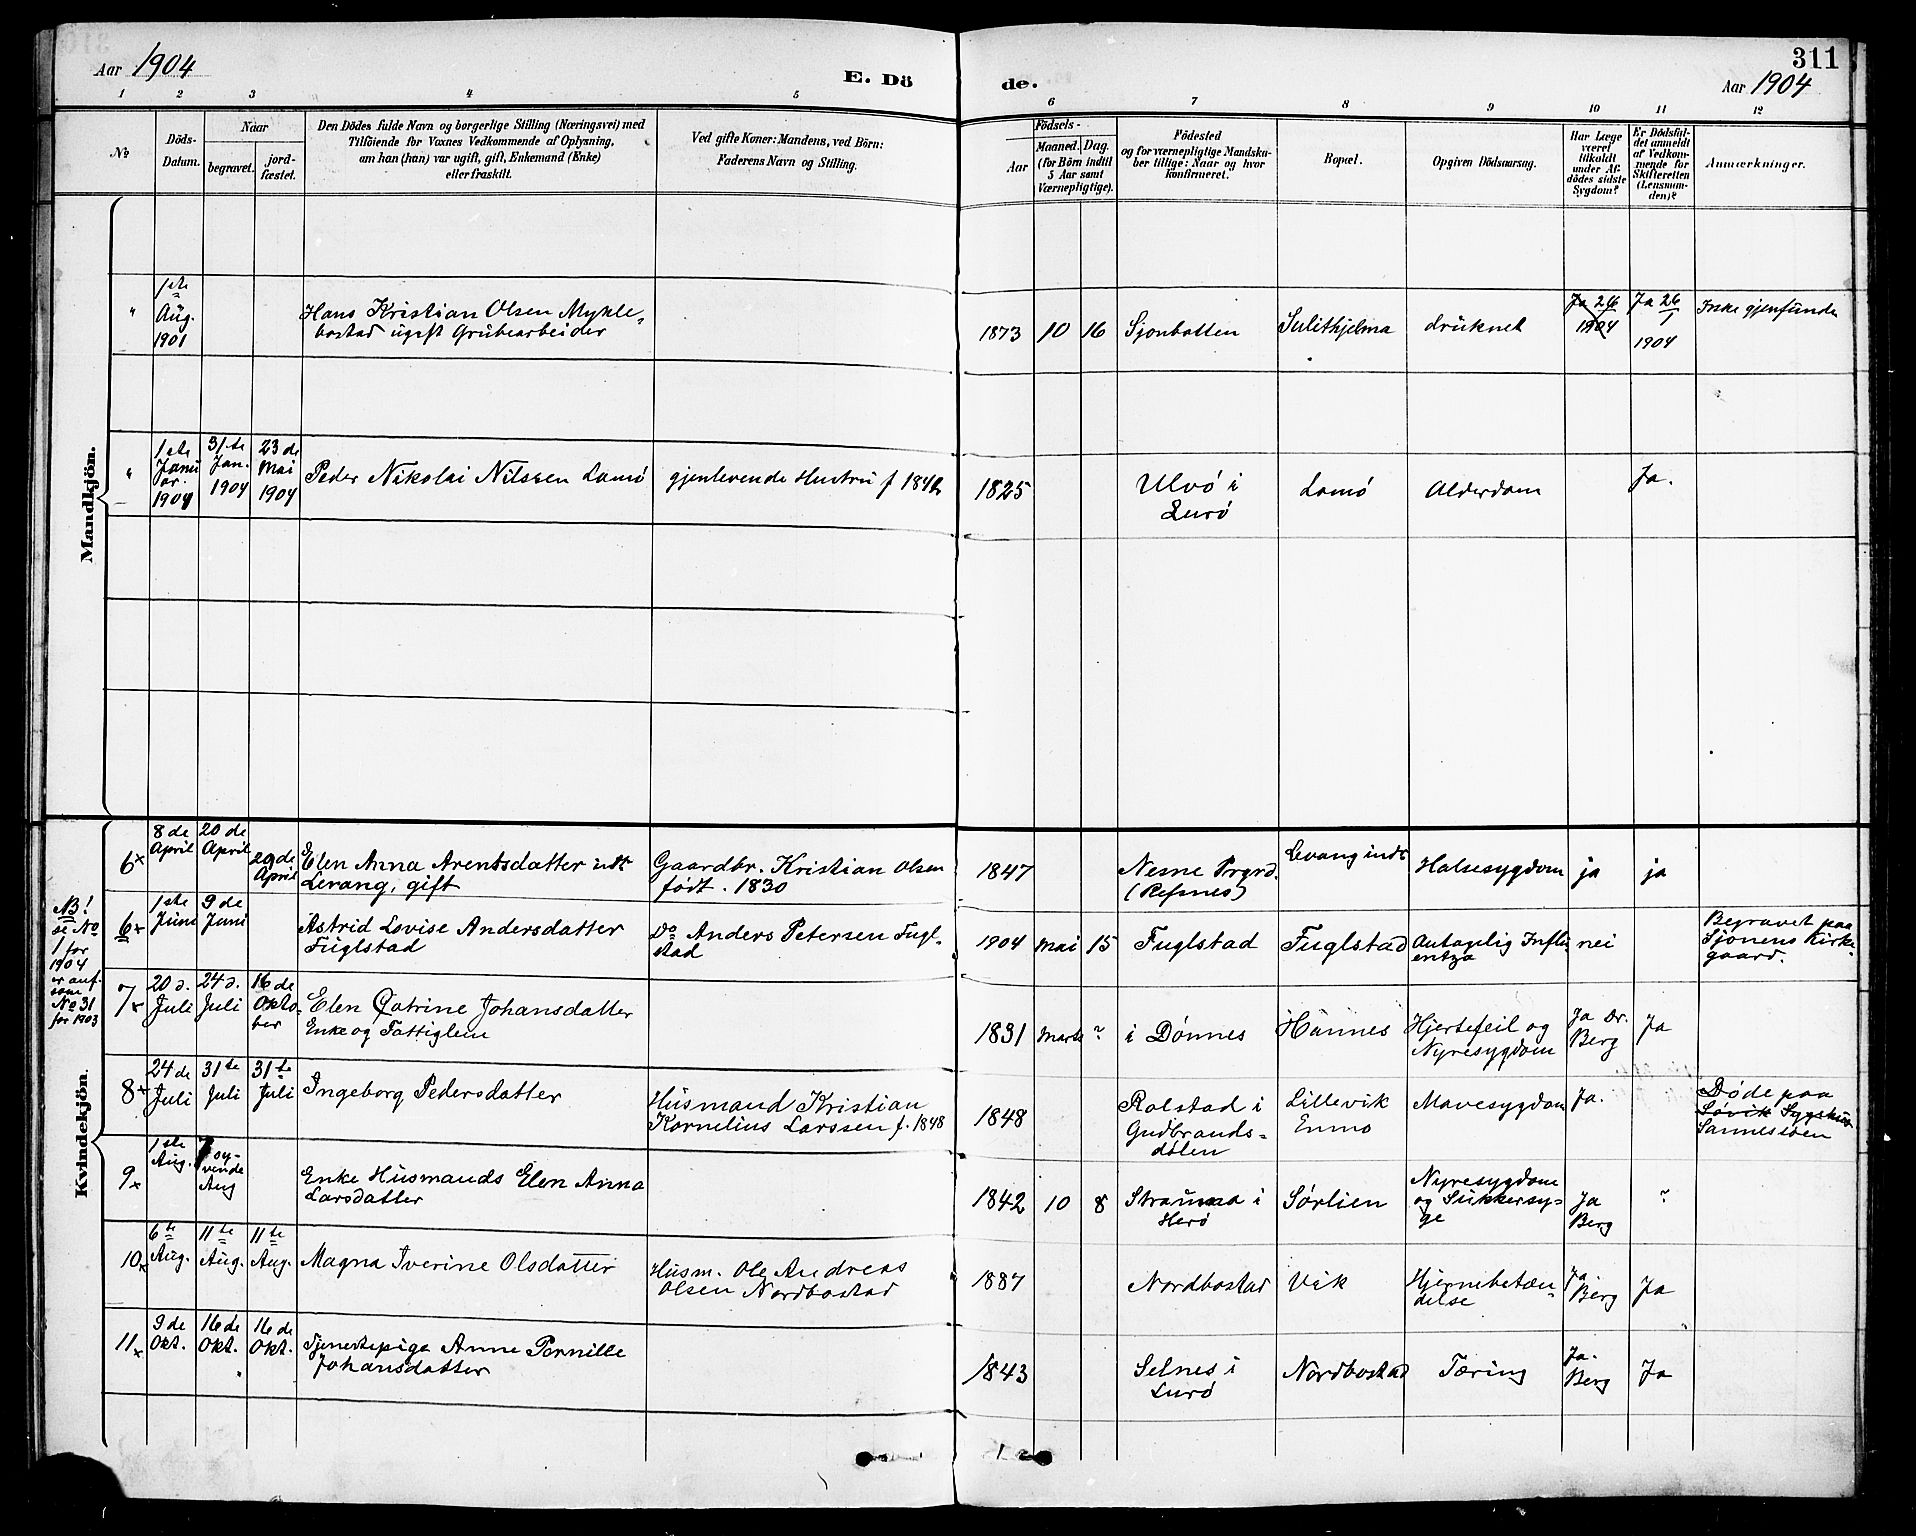 Aar 1904
E. Dö
de.
311
Aar 1904
1 2 3 4 5 6 7 8 9 10 11 12
No
Döds-
Datum.
Naar
begravet.
jord-
fæstet.
Den Dödes fulde Navn og borgerlige Stilling (Næringsvei) med
Tilföiende for Voxnes Vedkommende af Oplysning,
om han (hun) var ugift, gift, Enkemand (Enke)
eller fraskilt.
Ved gifte Koner: Mandens, ved Börn:
Faderens Navn og Stilling.
Födsels-
Aar
Maaned. Dag.
(for Börn indtil
5 Aar samt
Værnepligtige).
Födested
og for værnepligtige Mandska-
ber tillige: Naar og hvor
Konfirmeret.
Bopæl.
Opgiven Dödsaarsag.
Har Læge
været
tilkaldt
under Af-
dödes sidste
Sygdom?
Er Dödsfal-
det anmeldt
af Vedkom-
mende for
Skifteretten
(Lensman-
den)?
Anmærkninger.
Mandkjön.
"
1ste
Aug.
1901
Hans Kristian Olsen Mykle-
bostad ugift Grubearbeider
1873 10 16
Sjonbotten
Sulithjelma
druknet
Ja 26/1
1904
Ja 26/1
1904
Ikke gjenfunden
"
1ste
Janu
ar.
1904
31te
Jan.
1904
23de
Mai
1904
Peder Nikolai Nilssen Lamø
gjenlevende Hustru f 184
1825
Ulvø i
Lurø
Lamø
Alderdom
Ja.
Kvindekjön.
NB!
se No
1 for
1904
er anf.
som
No 31
for 1903
6x
8de
April
20de
April
29de
April
Elen Anna Arentsdatter indt
Levang, gift
Gaardbr. Kristian Olsen
født. 1830
1847
Nesne Prgrd.
(Refsnes)
Levang indt
Halsesygdom
ja
ja
6x
1ste
Juni
9de
Juni
Astrid Lovise Andersdatter
Fuglstad
Do Anders Petersen Fugl-
stad
1904 Mai 15
Fuglstad
Fuglstad
Antagelig Influ
entza
nei
Begravet paa
Sjonens Kirke-
gaard.
7x
20 d.
Juli
24 d.
Juli
16de
Okto-
ber
Elen Catrine Johansdatter
Enke og Fattiglem
1831 Marts ?
i Dønnes
Hannes
Hjertefeil og
Nyresygdom
Ja Dr.
Berg
Ja
8x
24de
Juli
31te
Juli
31te
Juli
Ingeborg Pedersdatter
Husmand Kristian
Kornelius Larssen f. 1848
1848
Rolstad i
Gudbrands-
dalen
Lillevik
Enmo
Mavesygdom
Ja.
Døde paa
Søvik Sygehus
Sannessøen
9x
1ste
Aug.
Aug
Enke Husmands Elen Anna
Larsdatter
1842 10 8
Strauma i
Herø
Sørlien
Nyresygdom
og Sukkersy-
ge
Ja
Berg
?
10x
6te
Aug.
11te
Aug.
11te
Aug.
Magna Iverine Olsdatter
Husm. Ole Andreas
Olsen Nordbostad
1887
Nordbostad
Vik
Hjernebetæn-
delse
Ja.
Berg
Ja
11x
9de
Okt.
16de
Okt.
16de
Okt.
Tjenestepige Anne Pernille
Johansdatter
1843
Selnes i
Lurø
Nordbostad
Tæring
Ja.
Berg
Ja